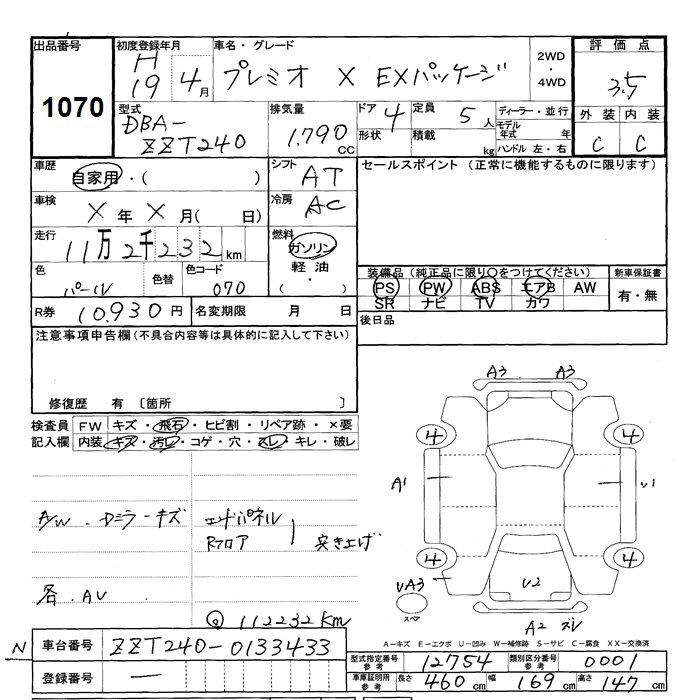 出品番号
1070
初度登録年月
H
19 4月
車名・グレード
プレミオ X EXパッケージ
2WD
・
4WD
評価点
3.5
外装 内装
C C
型式
DBA-
ZZT240
排気量
1.790
CC
ドア 4
形状
定員 5人
積載 kg
ディーラー・並行
モデル
年式 年
ハンドル 左・右
車歴
自家用・( )
シフト
AT
セールスポイント (正常に機能するものに限ります)
車検
X 年 X 月( 日)
冷房
AC
走行
11万2千232km
燃料
ガソリン
軽油・
( )
色
パール
色替
色コード
070
装備品 (純正品に限り○をつけてください)
新車保証書
PS PW ABS エアB AW
有・無
SR ナビ TV カワ
R券 10.930円
名変期限 月 日
後日品
注意事項申告欄(不具合内容等は具体的に記入して下さい)
修復歴 有 〔箇所 〕
検査員
記入欄
FW キズ・飛石・ヒビ割・リペア跡・×要
内装 キズ・汚レ・コゲ・穴・スレ・キレ・破レ
A/W . Dミラーキズ
エンドパネル
Rフロア
突き上げ
各. AU
@ 112232 Km
A3 A3
4 4
A1 U1
4 4
UA3
スペア
U2
A2 ズレ
A-キズ E-エクボ U-凹み W-補修跡 S-サビ C-腐食 XX-交換済
N 車台番号 ZZT240-0133433
登録番号 —
型式指定番号
参考
12754
類別区分番号
参考
0001
車庫証明用
参考
長さ 460 cm 幅 169 cm 高さ 147 cm